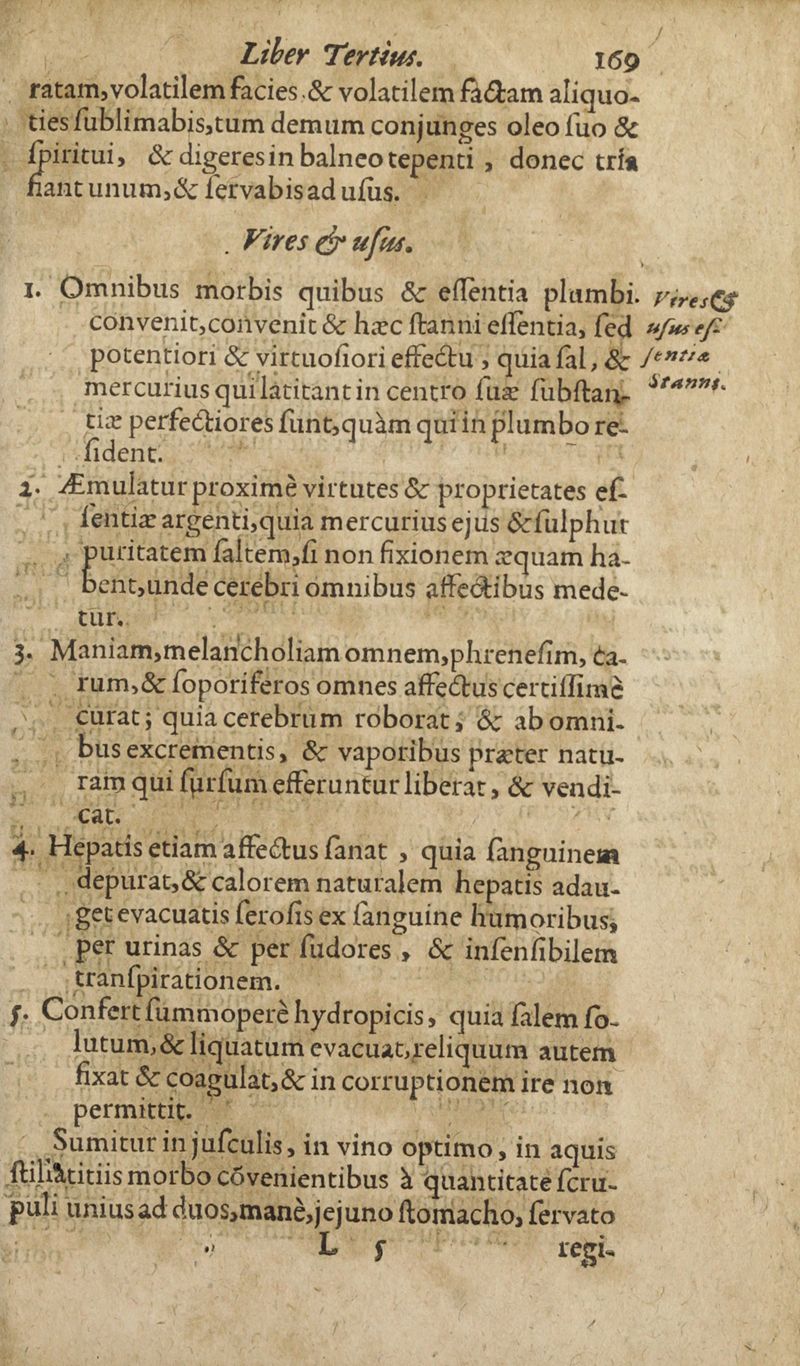 Liber Tertius. 169
ratam,volatilem facies.& volatilem factam aliquo-
ties ſublimabis,tum demum conjunges oleo ſuo &
ſpiritui, & digeres in balneo tepenti , donec tria
fiant unum,& ſervabis ad uſus.
. Vires & uſus.
1. Omnibus morbis quibus & eſſentia plumbi.
convenit,convenit & hæc ſtanni eſſentia, ſed
potentiori & virtuoſiori effectu , quia ſal, &
mercurius qui latitant in centro ſuæ ſubſtan-
tiæ perfectiores ſunt,quàm qui in plumbo re-
ſident.
Vires &
uſus eſ-
ſentia
Stanni.
2. Æmulatur proximè virtutes & proprietates eſ-
ſentiæ argenti,quia mercurius ejus & ſulphur
puritatem ſaltem,ſi non fixionem æquam ha-
bent,unde cerebri omnibus affectibus mede-
tur.
3. Maniam,melancholiam omnem,phreneſim, ca-
rum,& ſoporiferos omnes affectus certiſſimè
curat; quia cerebrum roborat, & ab omni-
bus excrementis, & vaporibus præter natu-
ram qui ſurſum efferuntur liberat, & vendi-
cat.
4. Hepatis etiam affectus ſanat , quia ſanguinem
depurat,& calorem naturalem hepatis adau-
get evacuatis ſeroſis ex ſanguine humoribus,
per urinas & per ſudores , & inſenſibilem
tranſpirationem.
5. Confert ſummoperè hydropicis, quia ſalem ſo-
lutum,& liquatum evacuat,reliquum autem
fixat & coagulat,& in corruptionem ire non
permittit.
Sumitur in juſculis, in vino optimo, in aquis
ſtillatitiis morbo cõvenientibus à quantitate ſcru-
puli unius ad duos,manè,jejuno ſtomacho, ſervato
L 5 regi-